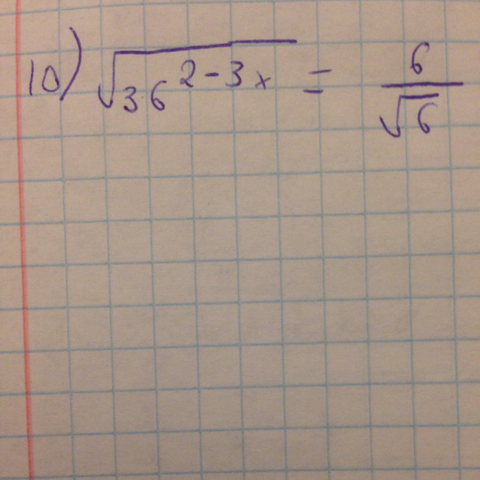 10) √36^(2-3x) = 6/√6